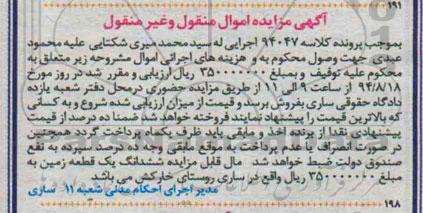 ۱۹۱
آگهی مزایده اموال منقول و غیر منقول
بموجب پرونده کلاسه ۹۴۰۴۷ اجرایی له سید محمد میری شکتایی علیه محمود
عبدی جهت وصول محکوم به و هزینه های اجرائی اموال مشروحه زیر متعلق به
محکوم علیه توقیف و بمبلغ ۳۵۰۰۰۰۰۰۰ ریال ارزیابی و مقرر شد در روز مورخ
۹۴/۸/۱۸ از ساعت ۹ الی ۱۱ از طریق مزایده حضوری درمحل دفتر شعبه یازده
دادگاه حقوقی ساری بفروش برسد و قیمت از میزان ارزیابی شده شروع و به کسانی
که بالاترین قیمت را پیشنهاد نمایند فروخته خواهد شد ضمنا ده درصد از قیمت
پیشنهادی نقدا از برنده اخذ و مابقی باید ظرف یکماه پرداخت گردد همچنین
در صورت انصراف یا عدم پرداخت به موقع مابقی وجه ده درصد سپرده به نفع
صندوق دولت ضبط خواهد شد مال قابل مزایده ششدانگ یک قطعه زمین به
مبلغ ۳۵۰۰۰۰۰۰۰ ریال واقع در ساری روستای خارکش می باشد
مدیر اجرای احکام مدنی شعبه ۱۱ ساری
۱۹۸